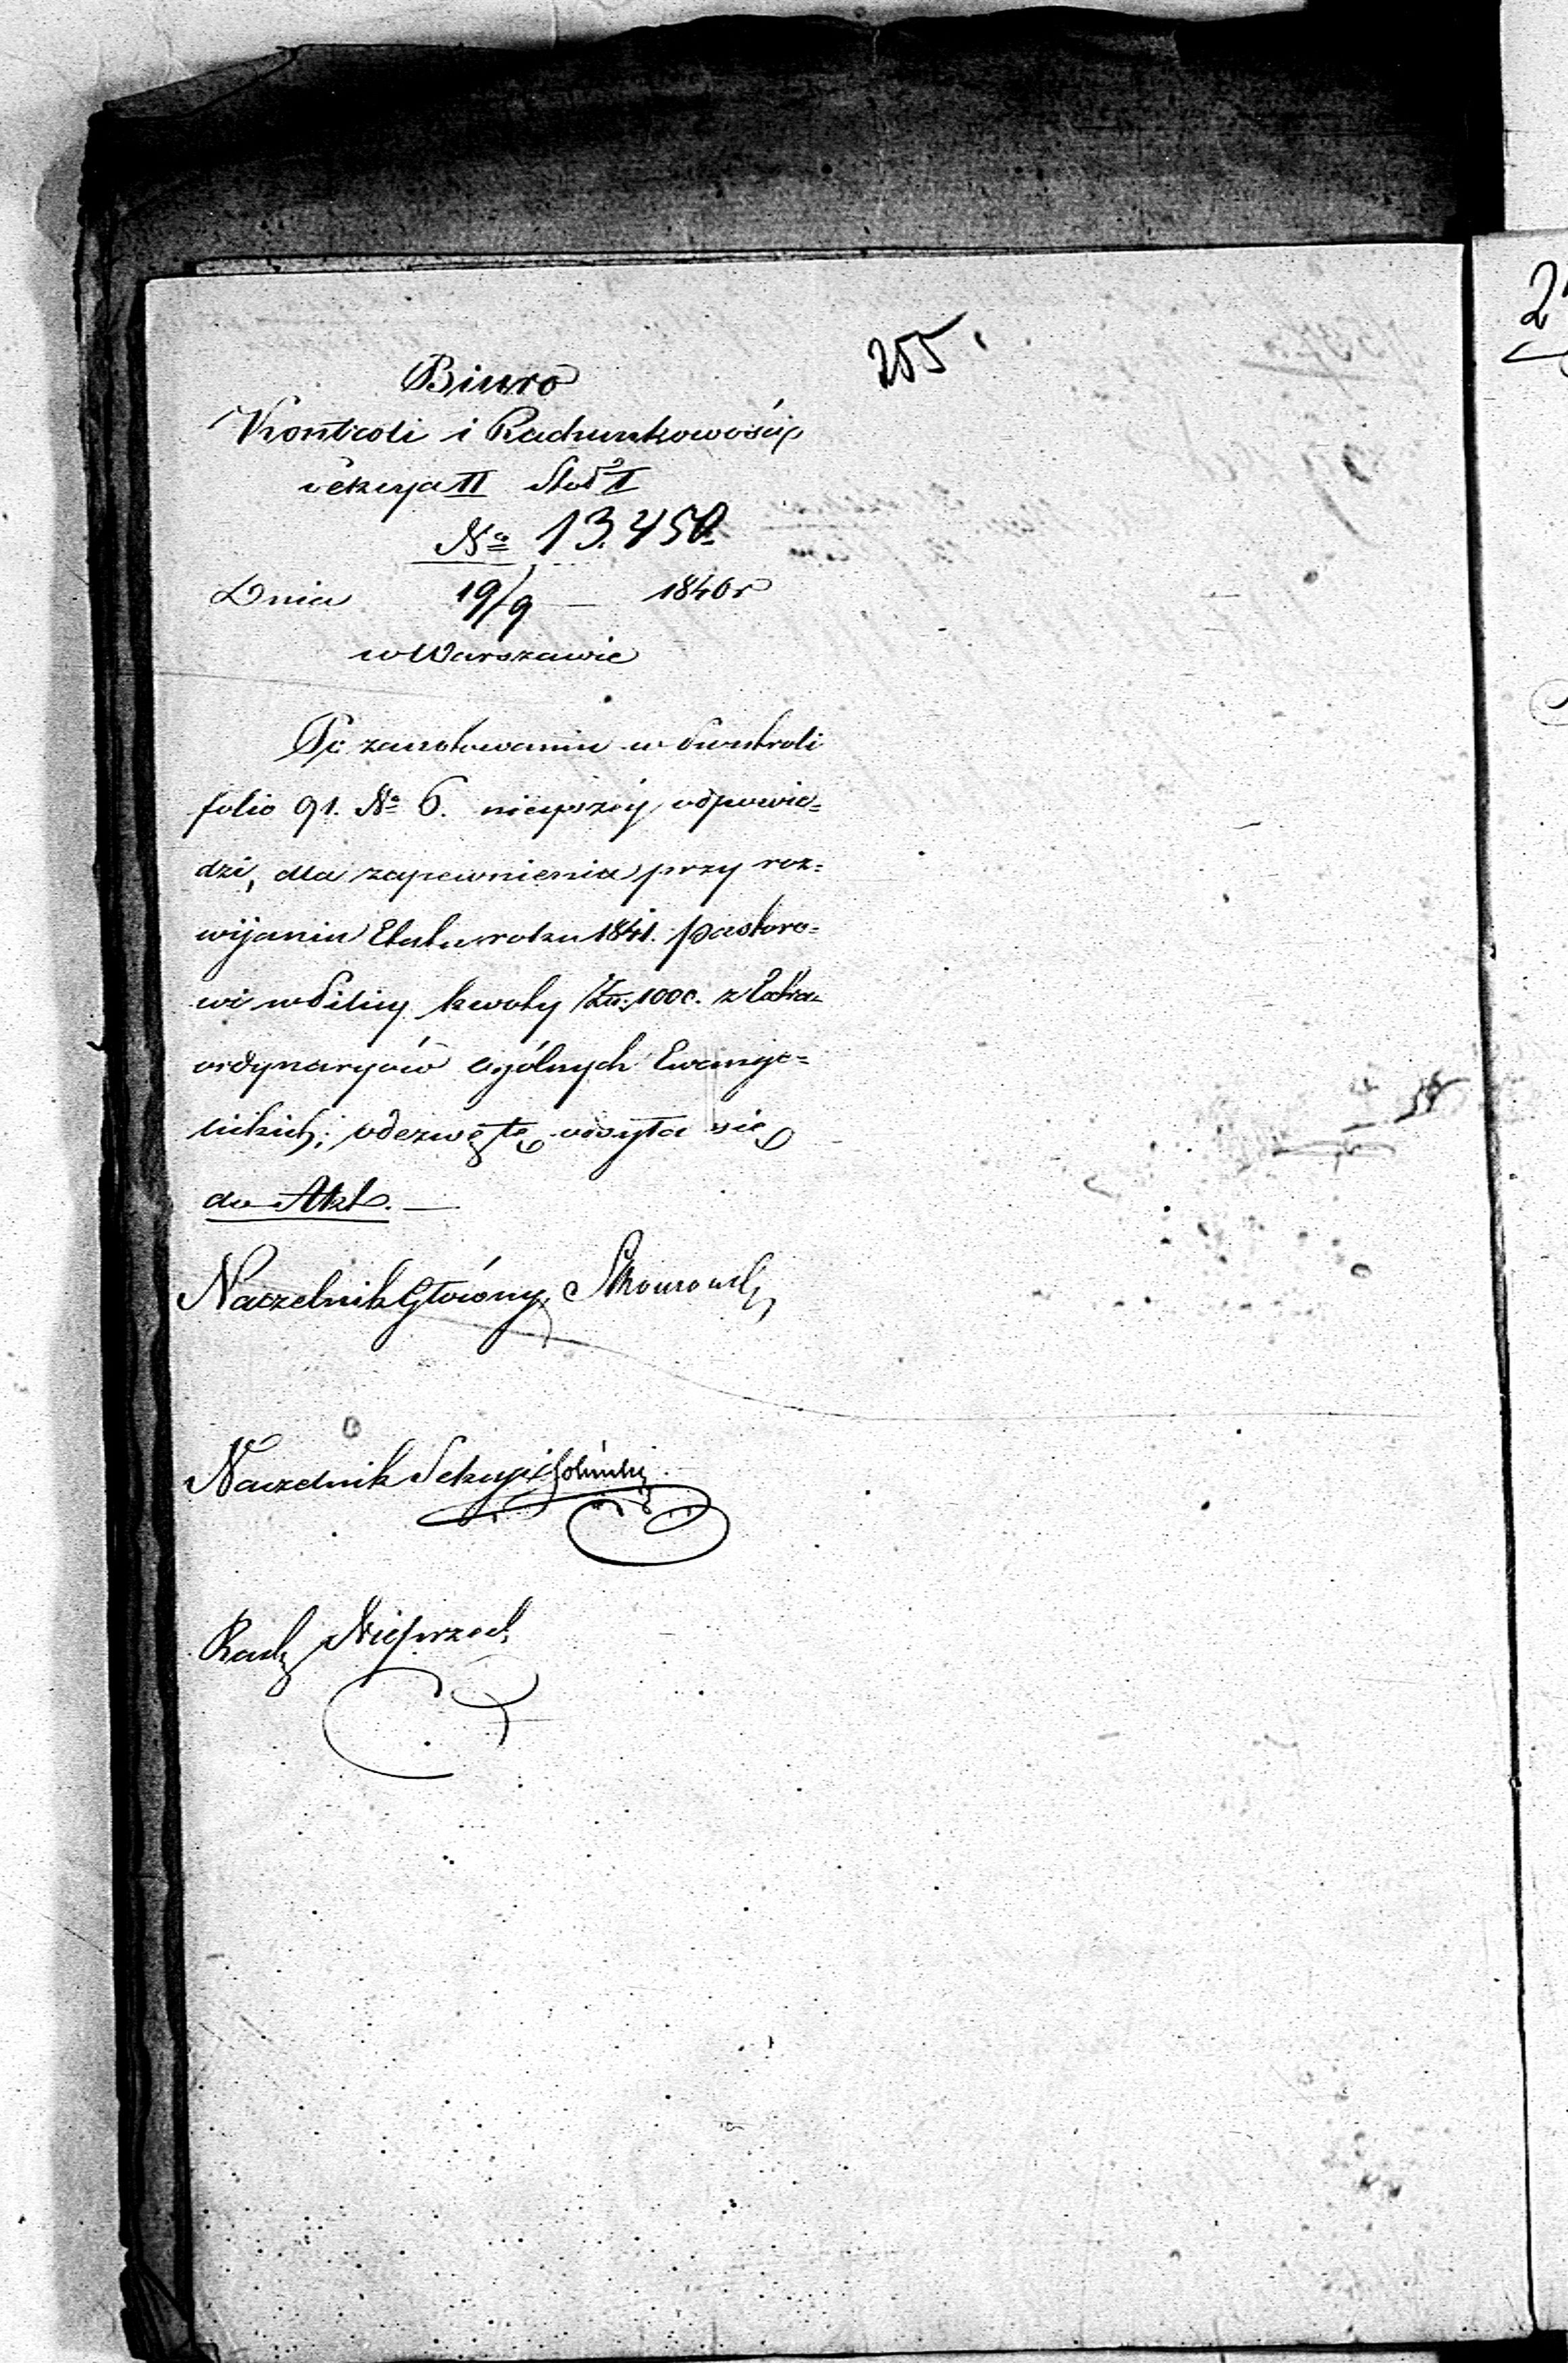 205.
Biuro
Kontroli i Rachunkowości
Sekcya II Stoł I
No 13.450.
Dnia 19/9 — 1840 r
w Warszawie
Po zanotowaniu w Kontroli
folio 91. No 6. ninieyszéy odpowie=
dzi, dla zapewnienia przy roz=
wijaniu Etatu roku 1841. Pastoro=
wi w kwoty 1000. z Extra=
ordynaryów ogólnych Ewangie=
lickich; odezwę tę odsyła się
do Akt. —
Naczelnik Główny
Naczelnik Sekcyi
Rach
2